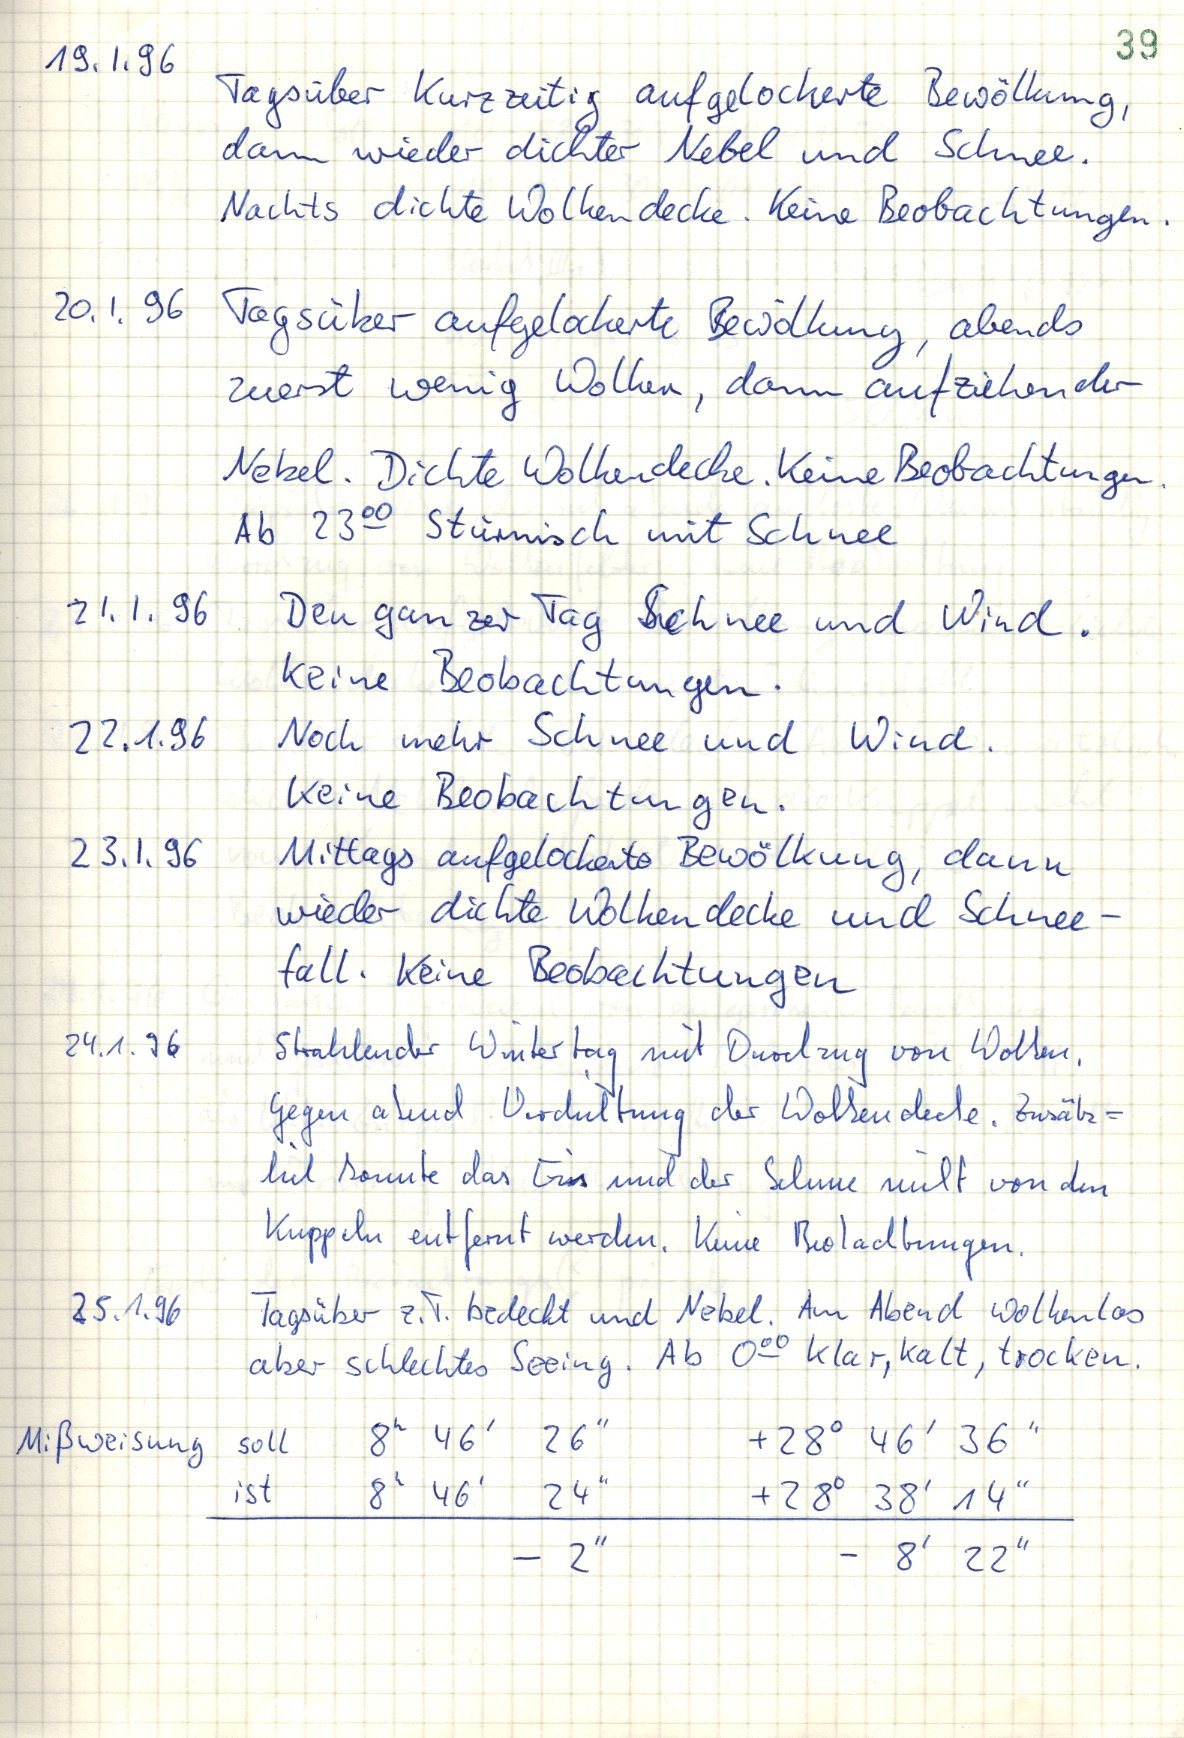 39
19.1.96
Tagsüber kurzzeitig aufgelockerte Bewölkung,
dann wieder dichter Nebel und Schnee.
Nachts dichte Wolkendecke. Keine Beobachtungen.
20.1.96 Tagsüber aufgelockerte Bewölkung, abends
zuerst wenig Wolken, dann aufziehender
Nebel. Dichte Wolkendecke. Keine Beobachtungen.
Ab 23⁰⁰ Stürmisch mit Schnee
21.1.96 Den ganzen Tag Schnee und Wind.
Keine Beobachtungen.
22.1.96 Noch mehr Schnee und Wind.
Keine Beobachtungen.
23.1.96 Mittags aufgelockerte Bewölkung, dann
wieder dichte Wolkendecke und Schnee-
fall. Keine Beobachtungen
24.1.96 Strahlender Wintertag mit Durchzug von Wolken.
Gegen abend Verdichtung der Wolkendecke. Zusätz=
lich konnte das Eis und der Schnee nicht von den
Kuppeln entfernt werden. Keine Beobachtungen.
25.1.96 Tagsüber z.T. bedeckt und Nebel. Am Abend wolkenlos
aber schlechtes Seeing. Ab 0⁰⁰ klar, kalt, trocken.
Mißweisung soll 8ʰ 46' 26" +28° 46' 36"
ist 8ʰ 46' 24" +28° 38' 14"
– 2" – 8' 22"